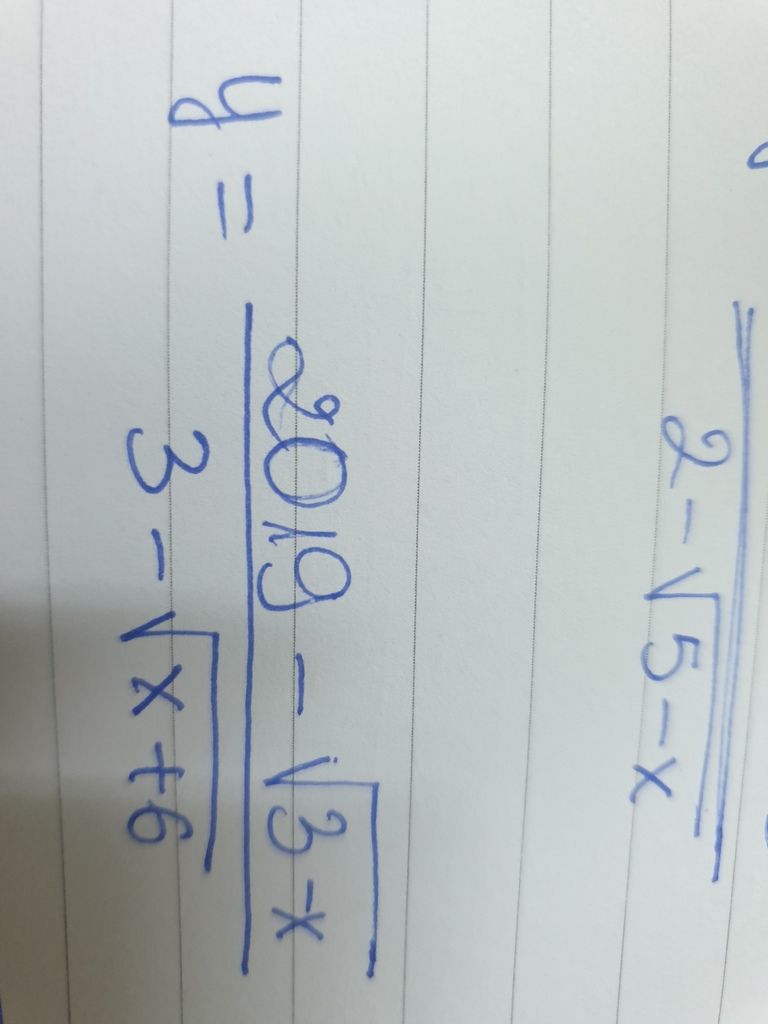 2 - √5 - x
y = 2019 - √3 - x
3 - √x + 6